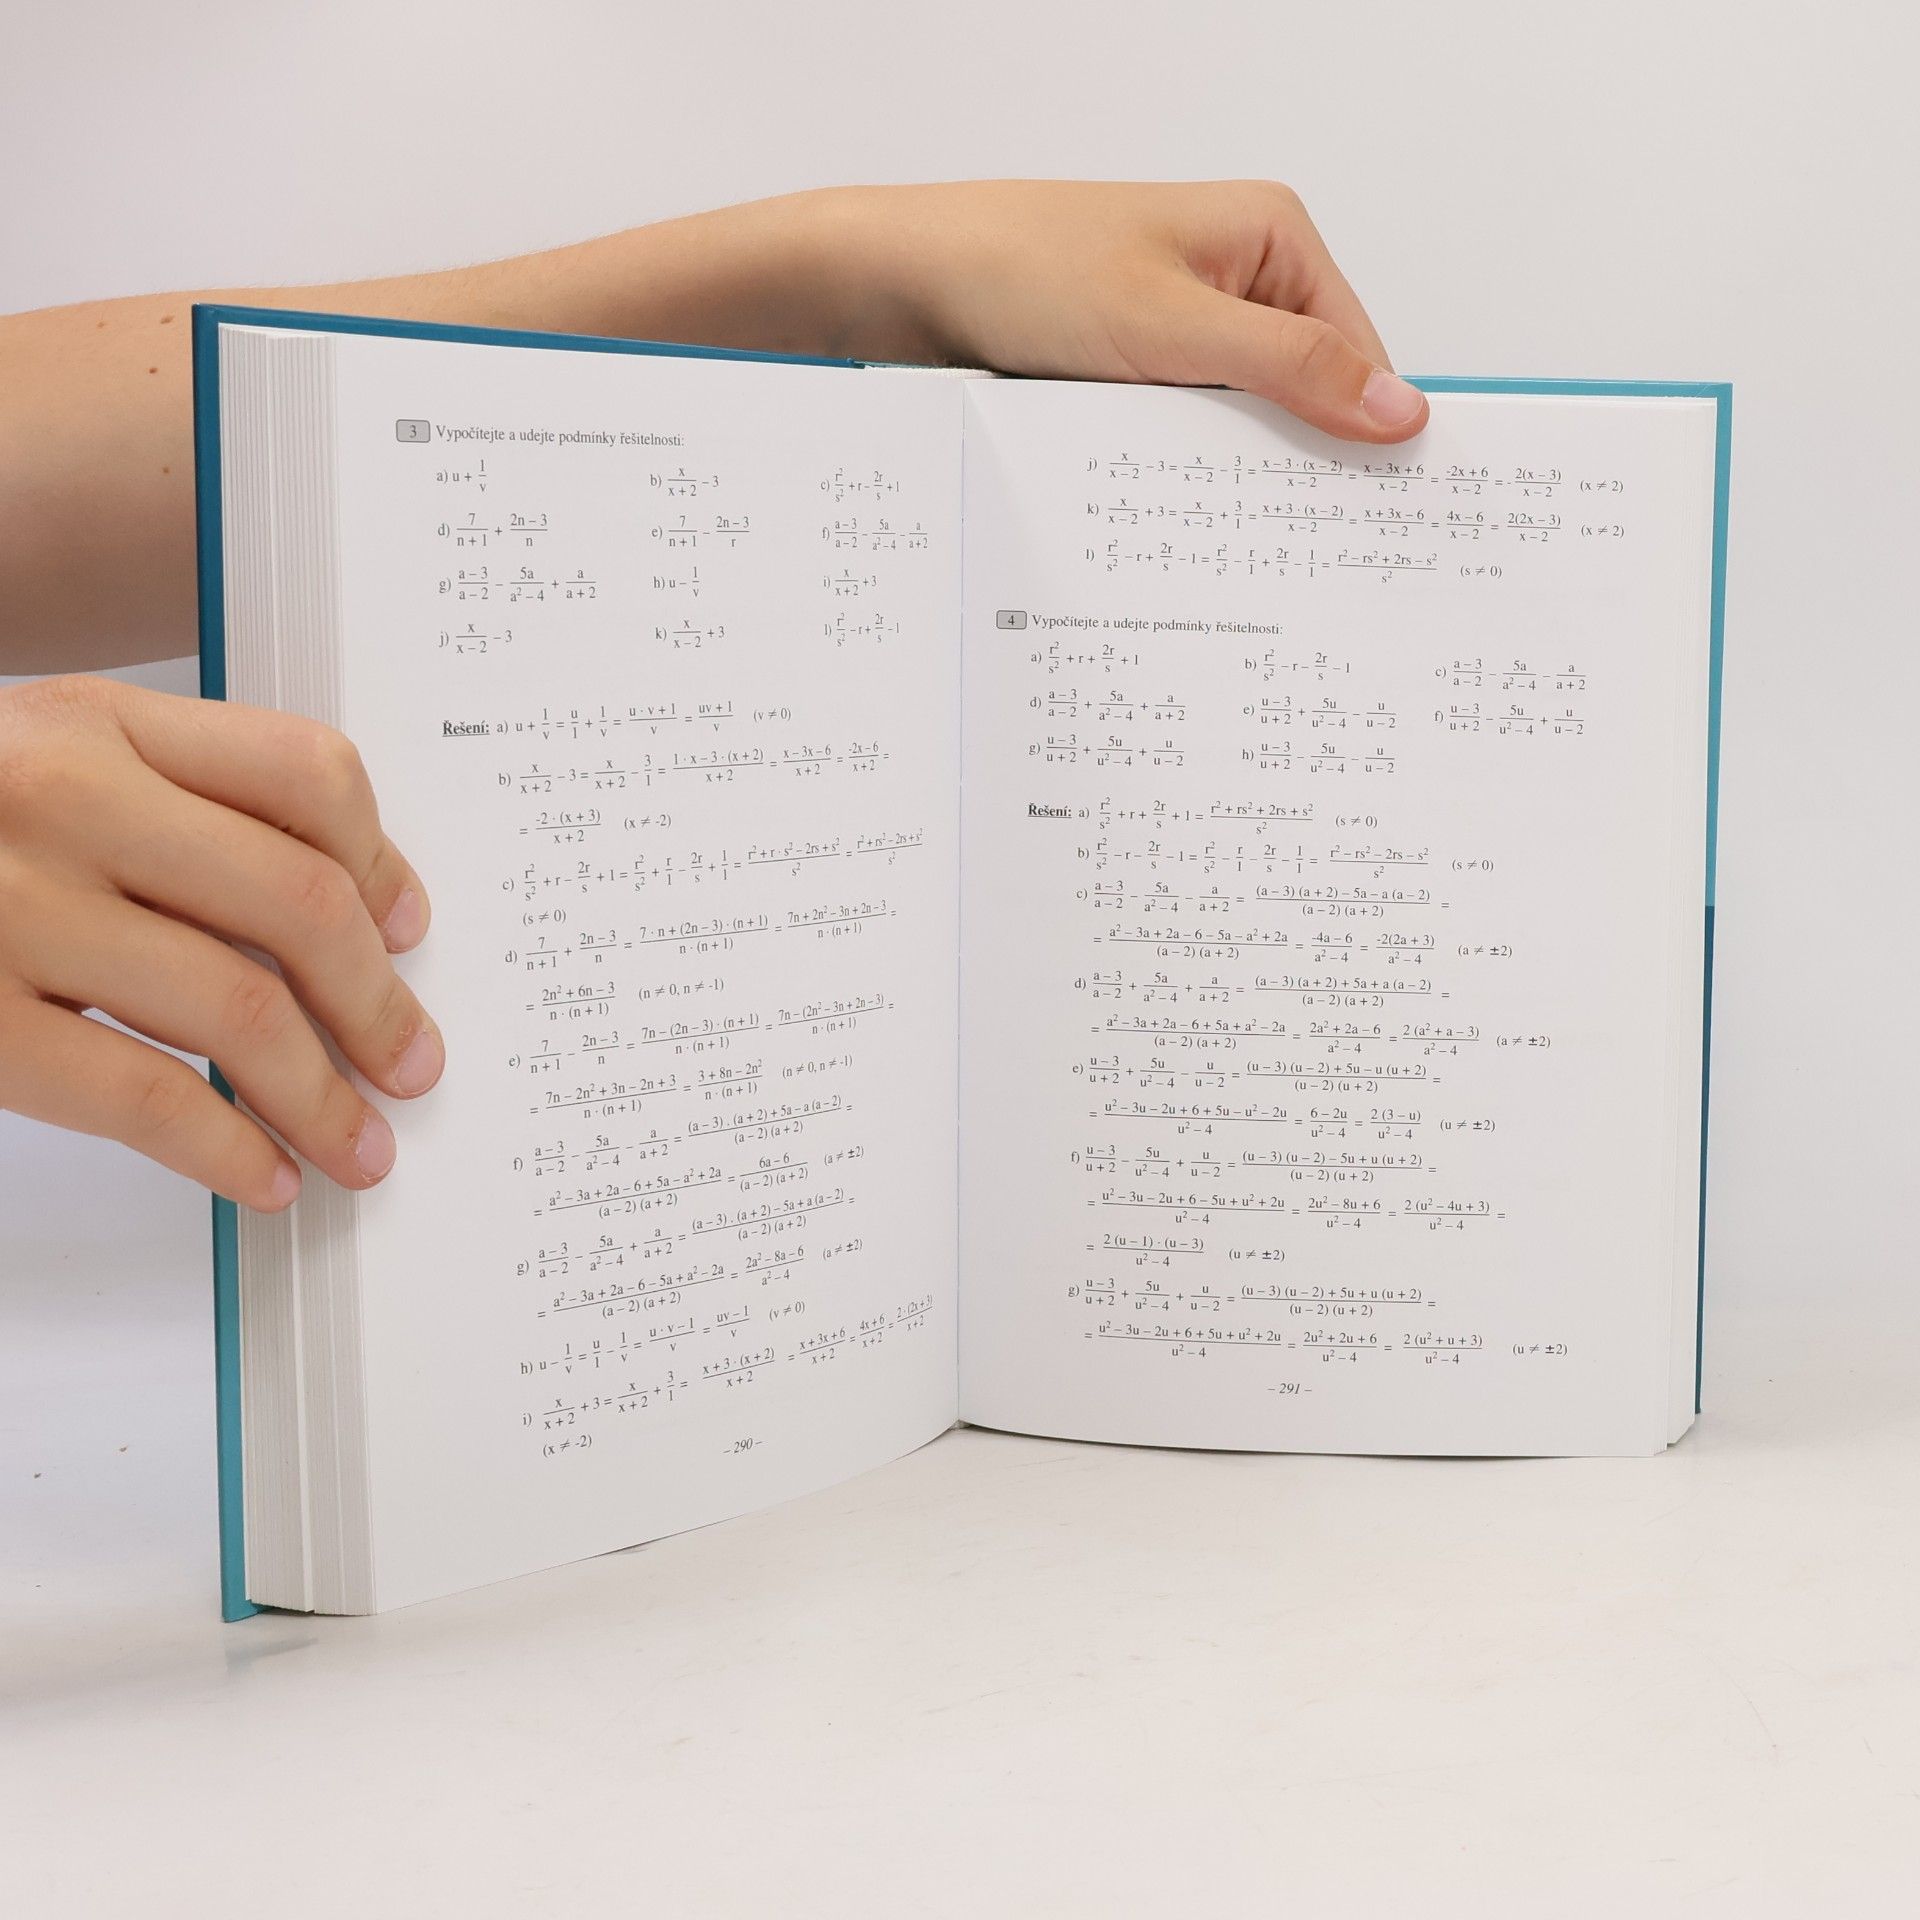 3 Vypočítejte a udejte podmínky řešitelnosti:
a) u + 1/v b) x/(x + 2) – 3 c) r²/s² + r – 2r/s + 1
d) 7/(n + 1) + (2n – 3)/n e) 7/(n + 1) – (2n – 3)/r f) (a – 3)/(a – 2) – 5a/(a² – 4) – a/(a + 2)
g) (a – 3)/(a – 2) – 5a/(a² – 4) + a/(a + 2) h) u – 1/v i) x/(x + 2) + 3
j) x/(x – 2) – 3 k) x/(x – 2) + 3 l) r²/s² – r + 2r/s – 1
Řešení: a) u + 1/v = u/1 + 1/v = (u · v + 1)/v = (uv + 1)/v (v ≠ 0)
b) x/(x + 2) – 3 = x/(x + 2) – 3/1 = (1 · x – 3 · (x + 2))/(x + 2) = (x – 3x – 6)/(x + 2) = (-2x – 6)/(x + 2) =
= (-2 · (x + 3))/(x + 2) (x ≠ -2)
c) r²/s² + r – 2r/s + 1 = r²/s² + r/1 – 2r/s + 1/1 = (r² + r · s² – 2rs + s²)/s² = (r² + rs² – 2rs + s²)/s²
(s ≠ 0)
d) 7/(n + 1) + (2n – 3)/n = (7 · n + (2n – 3) · (n + 1))/(n · (n + 1)) = (7n + 2n² – 3n + 2n – 3)/(n · (n + 1)) =
= (2n² + 6n – 3)/(n · (n + 1)) (n ≠ 0, n ≠ -1)
e) 7/(n + 1) – (2n – 3)/n = (7n – (2n – 3) · (n + 1))/(n · (n + 1)) = (7n – (2n² – 3n + 2n – 3))/(n · (n + 1)) =
= (7n – 2n² + 3n – 2n + 3)/(n · (n + 1)) = (3 + 8n – 2n²)/(n · (n + 1)) (n ≠ 0, n ≠ -1)
f) (a – 3)/(a – 2) – 5a/(a² – 4) – a/(a + 2) = ((a – 3) . (a + 2) + 5a – a (a – 2))/((a – 2) (a + 2)) =
= (a² – 3a + 2a – 6 + 5a – a² + 2a)/((a – 2) (a + 2)) = (6a – 6)/((a – 2) (a + 2)) (a ≠ ±2)
g) (a – 3)/(a – 2) – 5a/(a² – 4) + a/(a + 2) = ((a – 3) . (a + 2) – 5a + a (a – 2))/((a – 2) (a + 2)) =
= (a² – 3a + 2a – 6 – 5a + a² – 2a)/((a – 2) (a + 2)) = (2a² – 8a – 6)/(a² – 4) (a ≠ ±2)
h) u – 1/v = u/1 – 1/v = (u · v – 1)/v = (uv – 1)/v (v ≠ 0)
i) x/(x + 2) + 3 = x/(x + 2) + 3/1 = (x + 3 · (x + 2))/(x + 2) = (x + 3x + 6)/(x + 2) = (4x + 6)/(x + 2) = (2 · (2x + 3))/(x + 2)
(x ≠ -2)
– 290 –
j) x/(x – 2) – 3 = x/(x – 2) – 3/1 = (x – 3 · (x – 2))/(x – 2) = (x – 3x + 6)/(x – 2) = (-2x + 6)/(x – 2) = - (2(x – 3))/(x – 2) (x ≠ 2)
k) x/(x – 2) + 3 = x/(x – 2) + 3/1 = (x + 3 · (x – 2))/(x – 2) = (x + 3x – 6)/(x – 2) = (4x – 6)/(x – 2) = (2(2x – 3))/(x – 2) (x ≠ 2)
l) r²/s² – r + 2r/s – 1 = r²/s² – r/1 + 2r/s – 1/1 = (r² – rs² + 2rs – s²)/s² (s ≠ 0)
4 Vypočítejte a udejte podmínky řešitelnosti:
a) r²/s² + r + 2r/s + 1 b) r²/s² – r – 2r/s – 1 c) (a – 3)/(a – 2) – 5a/(a² – 4) – a/(a + 2)
d) (a – 3)/(a – 2) + 5a/(a² – 4) + a/(a + 2) e) (u – 3)/(u + 2) + 5u/(u² – 4) – u/(u – 2) f) (u – 3)/(u + 2) – 5u/(u² – 4) + u/(u – 2)
g) (u – 3)/(u + 2) + 5u/(u² – 4) + u/(u – 2) h) (u – 3)/(u + 2) – 5u/(u² – 4) – u/(u – 2)
Řešení: a) r²/s² + r + 2r/s + 1 = (r² + rs² + 2rs + s²)/s² (s ≠ 0)
b) r²/s² – r – 2r/s – 1 = r²/s² – r/1 – 2r/s – 1/1 = (r² – rs² – 2rs – s²)/s² (s ≠ 0)
c) (a – 3)/(a – 2) – 5a/(a² – 4) – a/(a + 2) = ((a – 3) (a + 2) – 5a – a (a – 2))/((a – 2) (a + 2)) =
= (a² – 3a + 2a – 6 – 5a – a² + 2a)/((a – 2) (a + 2)) = (-4a – 6)/(a² – 4) = (-2(2a + 3))/(a² – 4) (a ≠ ±2)
d) (a – 3)/(a – 2) + 5a/(a² – 4) + a/(a + 2) = ((a – 3) (a + 2) + 5a + a (a – 2))/((a – 2) (a + 2)) =
= (a² – 3a + 2a – 6 + 5a + a² – 2a)/((a – 2) (a + 2)) = (2a² + 2a – 6)/(a² – 4) = (2 (a² + a – 3))/(a² – 4) (a ≠ ±2)
e) (u – 3)/(u + 2) + 5u/(u² – 4) – u/(u – 2) = ((u – 3) (u – 2) + 5u – u (u + 2))/((u – 2) (u + 2)) =
= (u² – 3u – 2u + 6 + 5u – u² – 2u)/(u² – 4) = (6 – 2u)/(u² – 4) = (2 (3 – u))/(u² – 4) (u ≠ ±2)
f) (u – 3)/(u + 2) – 5u/(u² – 4) + u/(u – 2) = ((u – 3) (u – 2) – 5u + u (u + 2))/((u – 2) (u + 2)) =
= (u² – 3u – 2u + 6 – 5u + u² + 2u)/(u² – 4) = (2u² – 8u + 6)/(u² – 4) = (2 (u² – 4u + 3))/(u² – 4) =
= (2 (u – 1) · (u – 3))/(u² – 4) (u ≠ ±2)
g) (u – 3)/(u + 2) + 5u/(u² – 4) + u/(u – 2) = ((u – 3) (u – 2) + 5u + u (u + 2))/((u – 2) (u + 2)) =
= (u² – 3u – 2u + 6 + 5u + u² + 2u)/(u² – 4) = (2u² + 2u + 6)/(u² – 4) = (2 (u² + u + 3))/(u² – 4) (u ≠ ±2)
– 291 –